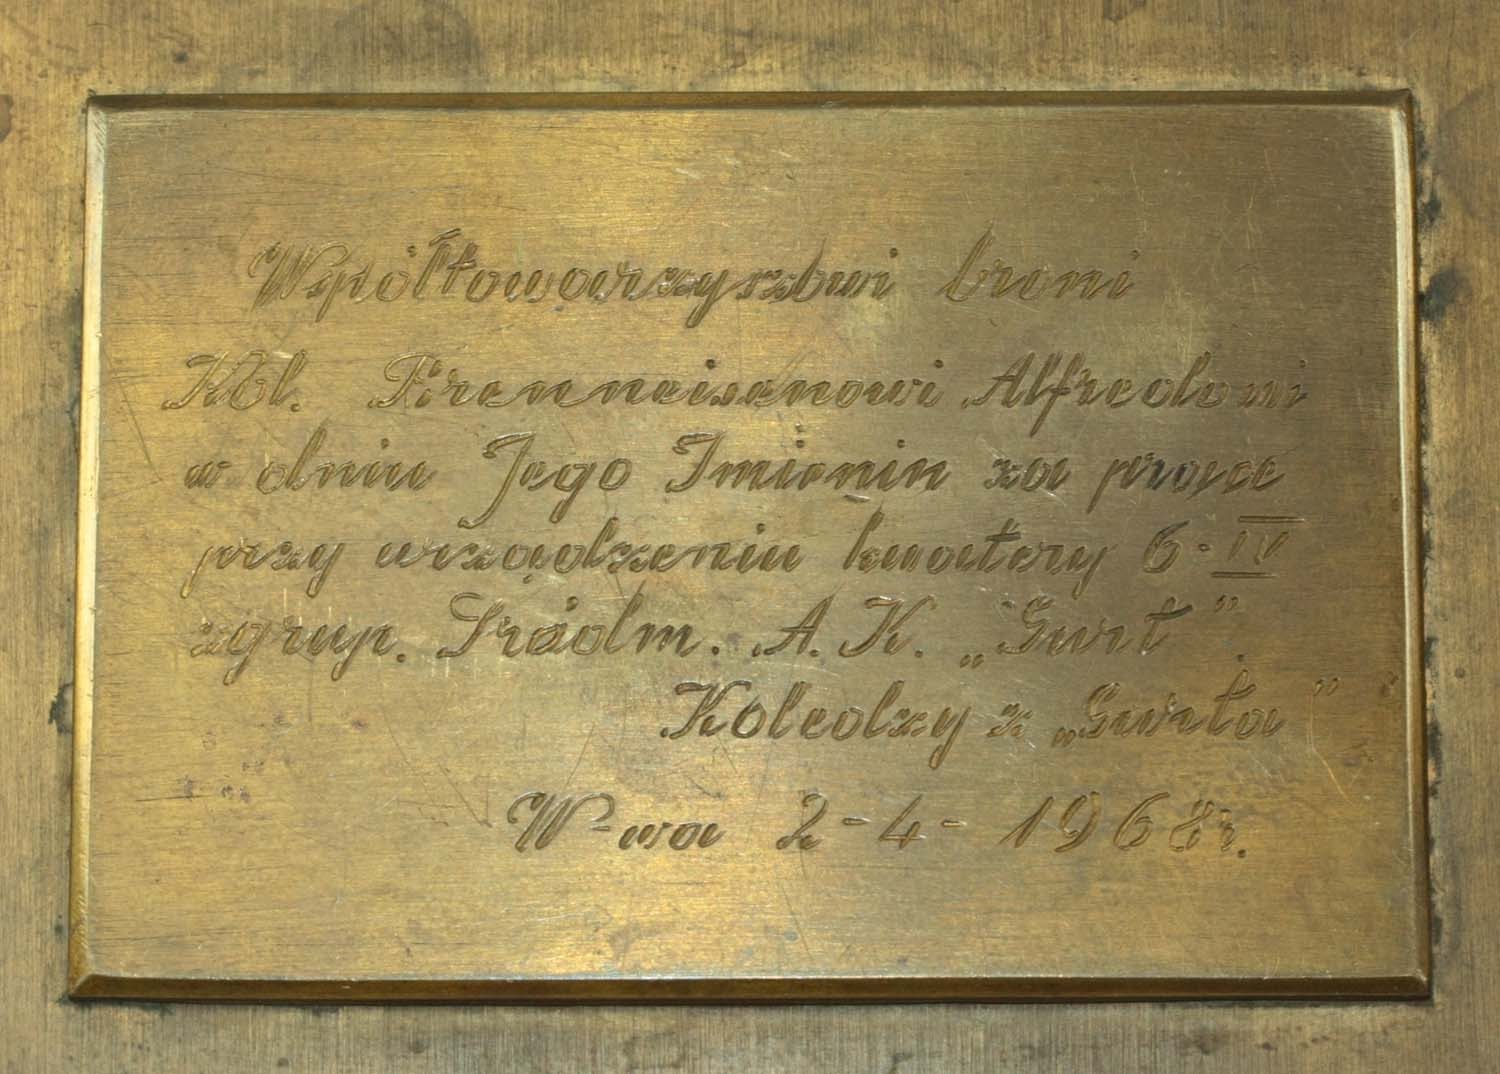 Współtowarzyszowi broni
Kol. Brenneisenowi Alfredowi
w dniu Jego Imienin za pracę
przy urządzeniu kwatery 6-IV
zgrup. Śródm. A.K. „Gurt”.
Koledzy z „Gurta”
W-wa 2-4-1968r.